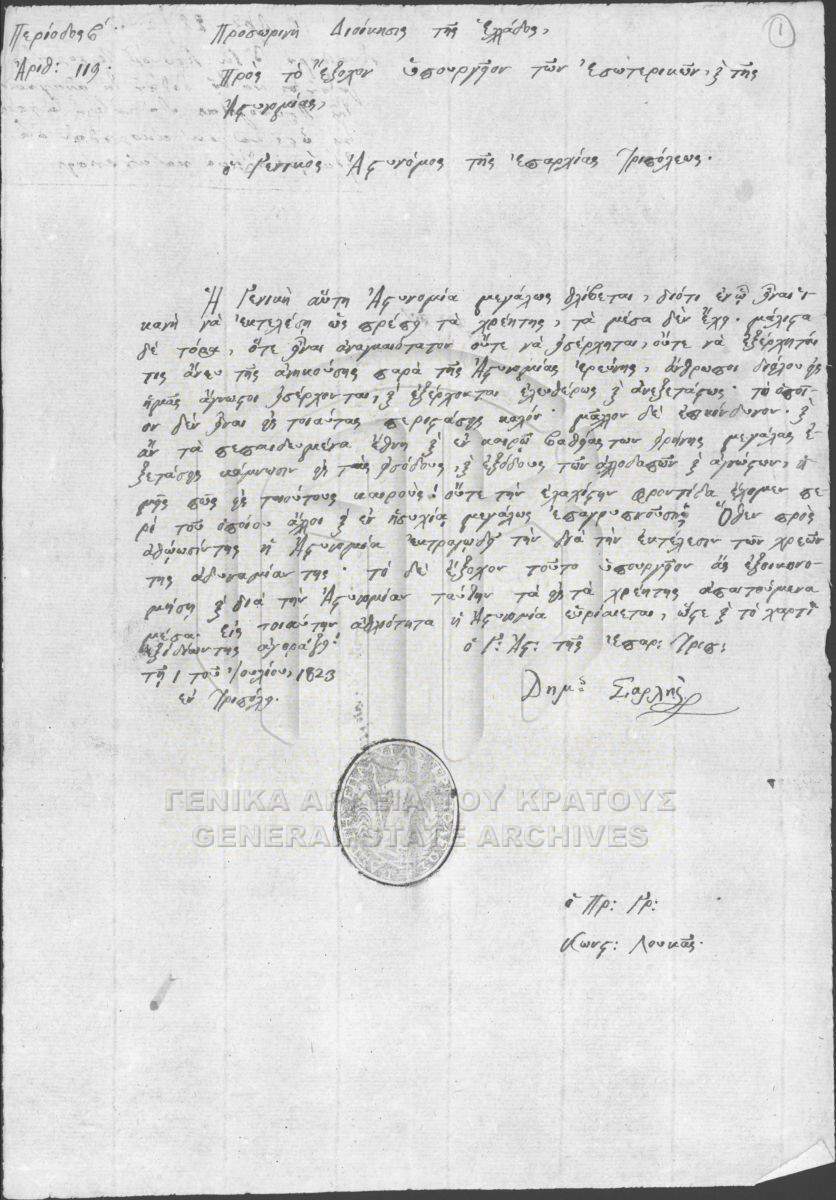 Περίοδος β΄.
Ἀριθ: 119.
1
Προσωρινὴ Διοίκησις τῆς Ἑλλάδος,
Πρὸς τὸ ἔξοχον ὑπουργεῖον τῶν ἐσωτερικῶν, καὶ τῆς
Ἀστυνομίας,
ὁ Γενικὸς Ἀστυνόμος τῆς ἐπαρχίας Τριπόλεως.
Ἡ Γενικὴ αὕτη Ἀστυνομία μεγάλως θλίβεται, διότι ἐνῷ εἶναι ἱ-
κανὴ νὰ ἐκτελέσῃ ὡς πρέπει τὰ χρέητης, τὰ μέσα δὲν ἔχει. μάλιστα
δὲ τόρα, ὅτε εἶναι ἀναγκαιότατον οὔτε νὰ εἰσέρχηται, οὔτε νὰ ἐξέρχηταί
τις ἄνευ τῆς ἀνηκούσης παρὰ τῆς Ἀστυνομίας ἐρεύνης, ἄνθρωποι διόλου εἰς
ἡμᾶς ἄγνωστοι εἰσέρχονται, καὶ ἐξέρχονται ἐλευθέρως καὶ ἀνεξετάστως. τὸ ὁποῖ-
ον δὲν εἶναι εἰς τοιαύτας περιστάσεις καλόν. μᾶλλον δὲ ἐπικίνδυνον. καὶ
ἂν τὰ πεπαιδευμένα ἔθνη καὶ ἐν καιρῷ βαθείας των εἰρήνης μεγάλας ἐ-
ξετάσεις κάμνωσιν εἰς τὰς εἰσόδους, καὶ ἐξόδους τῶν ἀλλοδαπῶν καὶ ἀγνώστων, ἡ-
μεῖς πῶς εἰς τοιούτους καιροὺς! οὔτε τὴν ἐλαχίστην φροντίδα ἔχομεν πε-
ρὶ τοῦ ὁποίου ἄλλοι καὶ ἐν ἡσυχίᾳ μεγάλως ἐπαγρυπνοῦσιν; Ὅθεν πρὸς
ἀθώωσίντης ἡ Ἀστυνομία ἐκτραγωδεῖ τὴν διὰ τὴν ἐκτέλεσιν τῶν χρεῶν
της ἀδυναμίαν της. τὸ δὲ ἔξοχον τοῦτο ὑπουργεῖον ἂς ἐξοικονο-
μήσῃ καὶ διὰ τὴν Ἀστυνομίαν ταύτην τὰ εἰς τὰ χρέητης ἀπαιτούμενα
μέσα. Εἰς τοιαύτην ἀθλιότητα ἡ Ἀστυνομία εὑρίσκεται, ὥστε καὶ τὸ χαρτὶ
ἐξ ἰδίων της ἀγοράζει!
τῇ 1 τοῦ Ἰουλίου, 1823
ἐν Τριπόλει.
ὁ Γ: Ἀστ: τῆς Ἐπαρ: Τριπ:
Δημ:ς Σαρλῆς
ΓΕΝΙΚΑ ΑΡΧΕΙΑ ΤΟΥ ΚΡΑΤΟΥΣ
GENERAL STATE ARCHIVES
ὁ Πρ: Γρ:
Κωνστ: Λουκᾶς.